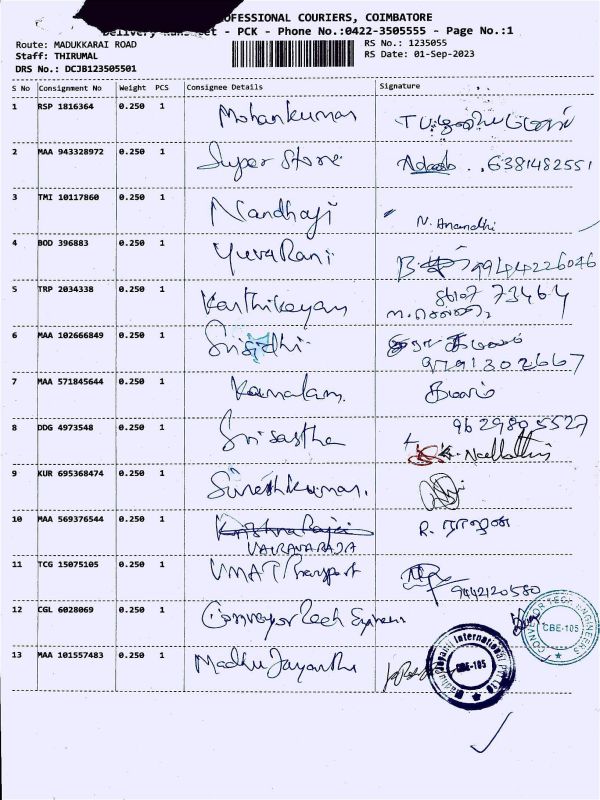 OFESSIONAL COURIERS, COIMBATORE
Delivery RunSheet - PCK - Phone No.:0422-3505555 - Page No.:1
Route: MADUKKARAI ROAD
RS No.: 1235055
Staff: THIRUMAL
RS Date: 01-Sep-2023
DRS No.: DCJB123505501
S No Consignment No Weight PCS Consignee Details Signature
1 RSP 1816364 0.250 1 Mohankumar
2 MAA 943328972 0.250 1 Super Store 6381482551
3 TMI 10117860 0.250 1 Nandhaji N. Anandhi
4 BOD 396883 0.250 1 Yuva Rani 9944226046
5 TRP 2034338 0.250 1 Karthikeyan 86107 73464
6 MAA 102666849 0.250 1 Srisidhi
9791302667
7 MAA 571845644 0.250 1 Kamalam
8 DDG 4973548 0.250 1 Sri Sastha
9 KUR 695368474 0.250 1 Sureshkumar.
10 MAA 569376544 0.250 1
VAIRAVARAJA
11 TCG 15075105 0.250 1 VMAT Transport
9442120580
12 CGL 6028069 0.250 1 Conveyor Tech System
CONVEYOR TECH ENGINEERS
CBE-105
13 MAA 101557483 0.250 1 Madhu Jayanthi
Madhu Jayanti International Pvt Ltd
CBE-105